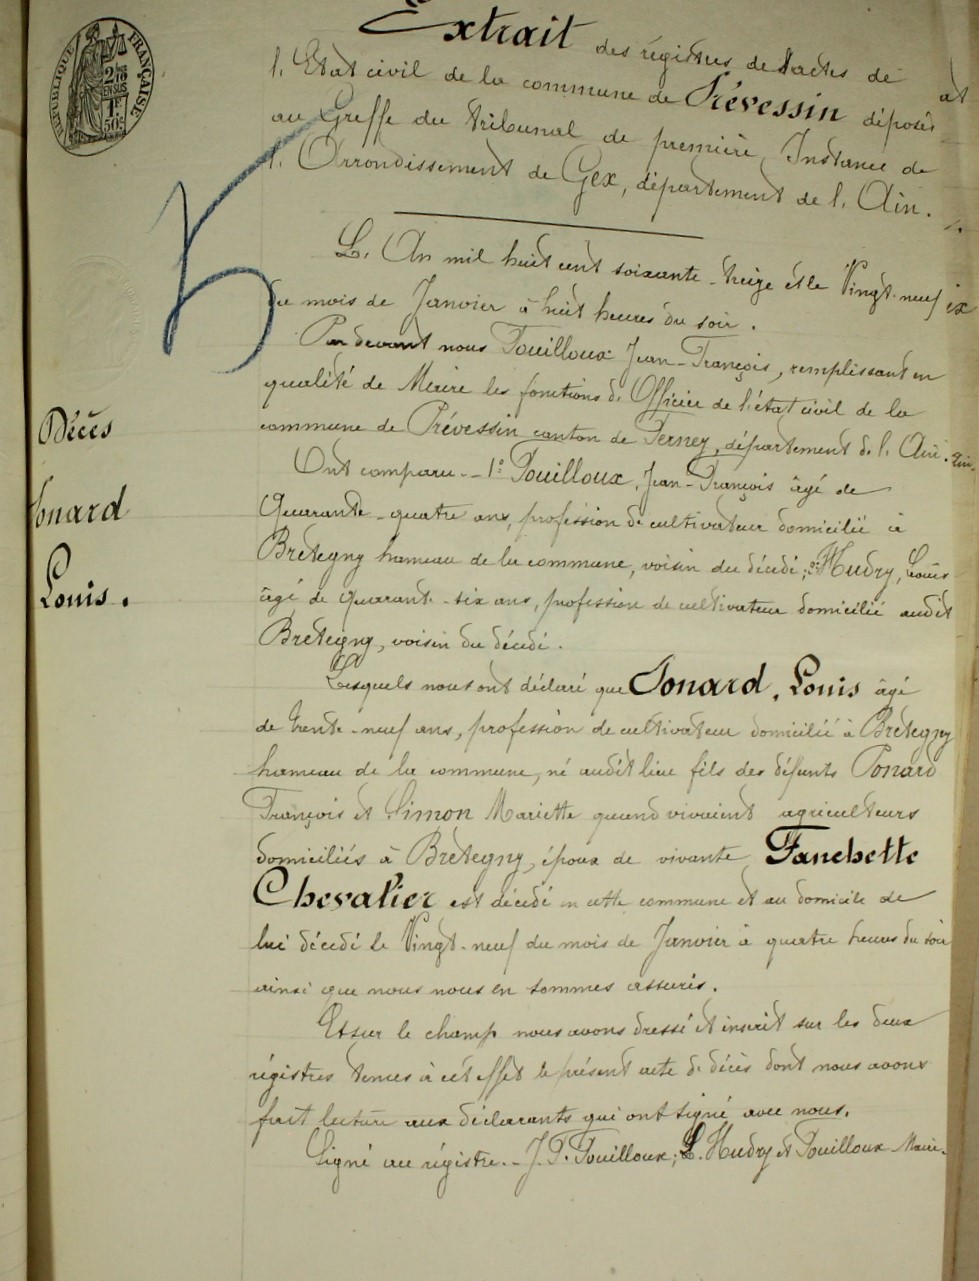 RÉPUBLIQUE FRANÇAISE
2/10
EN SUS
1F
50c
Extrait des régistres de d'actes de
l'Etat civil de la commune de Prévessin déposés
au Greffe du tribunal de première Instance de
l'Arrondissement de Gex, département de l'Ain.
L'An mil huit cent soixante-treize et le Vingt-neuf
du mois de Janvier à huit heures du soir.
Par devant nous Pouilloux Jean-François, remplissant en
qualité de Maire les fonctions d'Officier de l'état civil de la
commune de Prévessin canton de Ferney, département de l'Ain.
Ont comparu - 1º Pouilloux, Jean-François âgé de
Quarante-quatre ans, profession de cultivateur domicilié à
Brétegny hameau de la commune, voisin du décédé; 2º Hudry, Louis
âgé de quarante-six ans, profession de cultivateur domicilié audit
Brétegny, voisin du décédé.
Décès
Ponard
Louis.
Lesquels nous ont déclaré que Ponard, Louis âgé
de trente-neuf ans, profession de cultivateur domicilié à Brétegny
hameau de la commune, né audit lieu fils des défunts Ponard
François et Simon Mariette quand vivaient agriculteurs
domiciliés à Brétegny, époux de vivante Fanchette
Chevalier est décédé en cette commune et au domicile de
lui décédé le Vingt-neuf du mois de Janvier à quatre heures du soir
ainsi que nous nous en sommes assurés.
Et sur le champ nous avons dressé et inscrit sur les deux
régistres tenus à cet effet le présent acte de décès dont nous avons
fait lecture aux déclarants qui ont signé avec nous.
Signé au régistre - J. F. Pouilloux; L. Hudry et Pouilloux Maire.